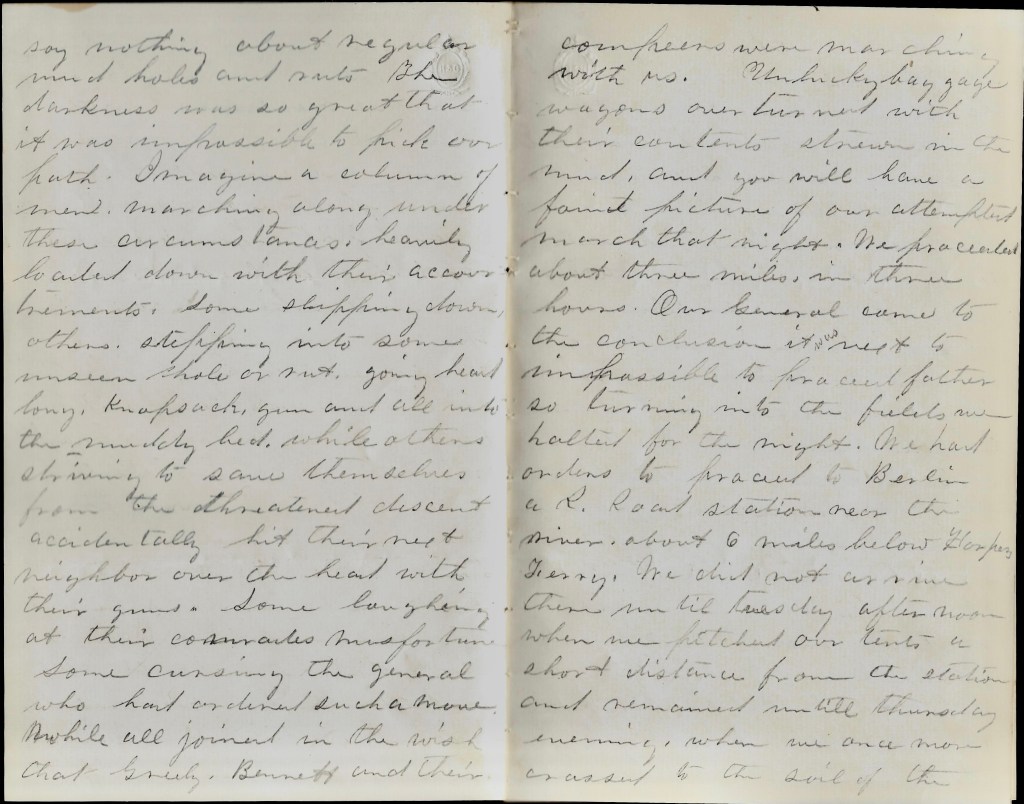 say nothing about regular
mud holes and ruts The
darkness was so great that
it was impossible to pick our
path. Imagine a column of
men. marching along under
these circumstances. heavily
loaded down with their accour
trements. Some slipping down,
others. stepping into some
unseen hole or rut. going head
long, Knapsack, gun and all into
the muddy bed. while others
striving to save themselves
from the threatened descent
accidentally hit their next
neighbor over the head with
their guns. Some laughing
at their comrades misfortune
Some cursing the general
who had ordered such a move.
While all joined in the wish
that Greely. Bennett and their
compeers were marching
with us. Unlucky baggage
wagons overturned with
their contents strewn in the
mud, and you will have a
faint picture of our attempted
march that night. We proceeded
about three miles. in three
hours. Our General came to
the conclusion it was next to
impossible to proceed father
so turning into the fields we
halted for the night. We had
orders to proceed to Berlin
a R. Road station near the
river. about 6 miles below Harpers
Ferry. We did not arrive
there until tuesday afternoon
when we pitched our tents a
short distance from the station
and remained untill thursday
evening, when we once more
crossed to the soil of the